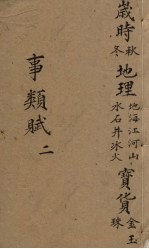 歳時 秋冬
地理 地海江河山水石井冰火
寶貨 金玉珠
事類賦 二